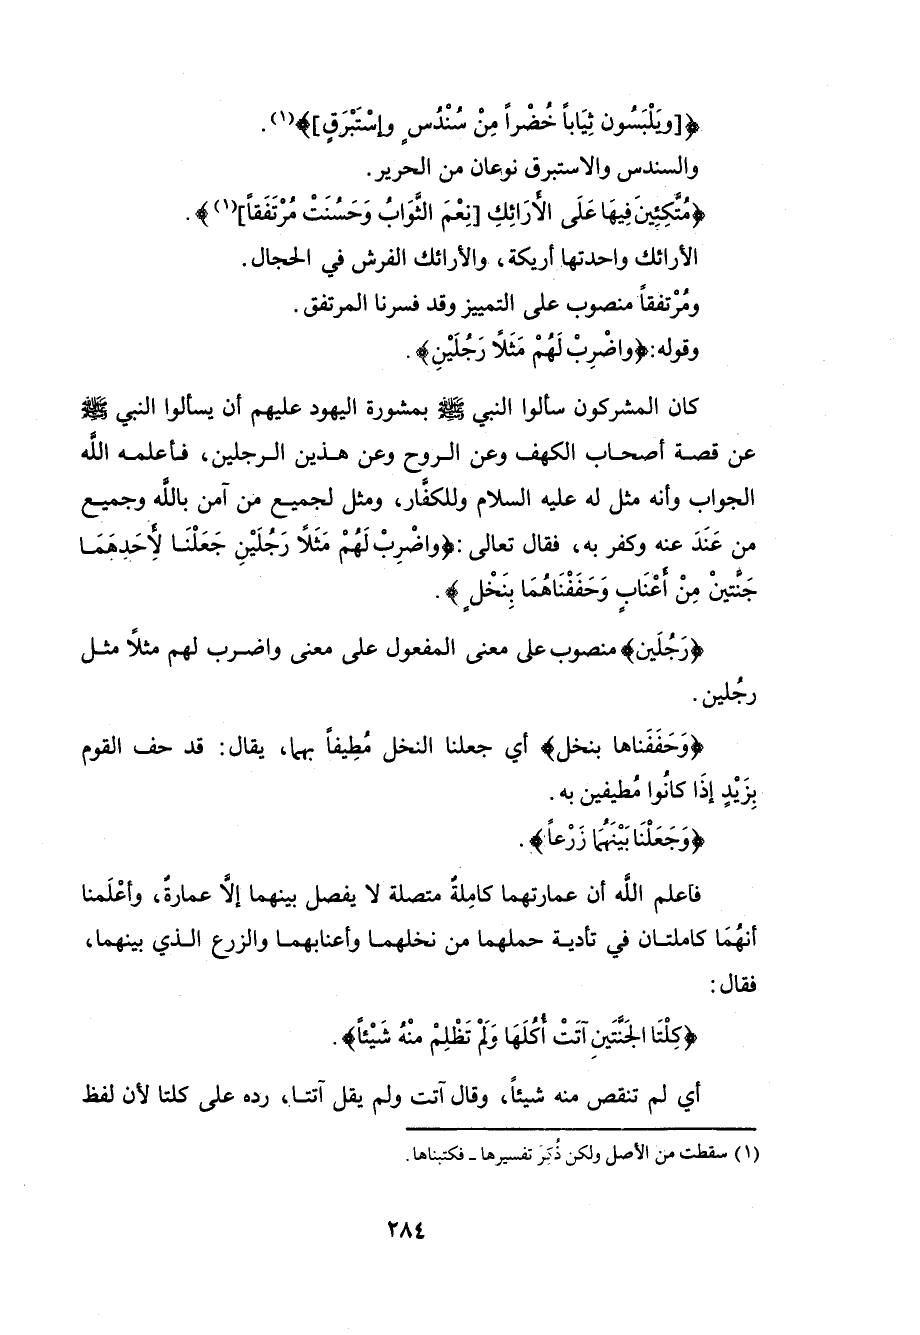 ﴿[ويَلْبَسُون ثِيَاباً خُضْراً مِنْ سُنْدُسٍ وإسْتَبْرَقٍ]﴾(١).
والسندس والاستبرق نوعان من الحرير.
﴿مُتَّكِئِينَ فِيهَا عَلَى الأَرَائِكِ [نِعْمَ الثَّوَابُ وَحَسُنَتْ مُرْتَفَقاً](١)﴾.
الأرائك واحدتها أريكة، والأرائك الفرش في الحجال.
ومُرْتفقاً منصوب على التمييز وقد فسرنا المرتفق.
وقوله:﴿واضْرِبْ لَهُمْ مَثَلًا رَجُلَيْنِ﴾.
كان المشركون سألوا النبي ﷺ بمشورة اليهود عليهم أن يسألوا النبي ﷺ
عن قصة أصحاب الكهف وعن الروح وعن هذين الرجلين، فأعلمه اللَّه
الجواب وأنه مثل له عليه السلام وللكفَّار، ومثل لجميع من آمن باللَّه وجميع
من عَنَدَ عنه وكفر به، فقال تعالى:﴿واضْرِبْ لَهُمْ مَثَلًا رَجُلَيْنِ جَعَلْنَا لِأَحَدِهِمَا
جَنَّتينْ مِنْ أَعْنَابٍ وَحَفَفْنَاهُمَا بِنَخْلٍ﴾.
﴿رَجُلَين﴾ منصوب على معنى المفعول على معنى واضرب لهم مثلًا مثل
رجُلين.
﴿وَحَفَفَناها بنخل﴾ أي جعلنا النخل مُطِيفاً بهما، يقال: قد حف القوم
بِزَيْدٍ إذَا كانُوا مُطيفين به.
﴿وَجَعَلْنَا بَيْنَهُمَا زَرْعاً﴾.
فاعلم اللَّه أن عمارتهما كامِلةٌ متصلة لا يفصل بينهما إلَّا عمارةٌ، وأعْلَمنا
أنهُمَا كاملتان في تأدية حملهما من نخلهما وأعنابهما والزرع الذي بينهما،
فقال:
﴿كِلْتَا الجَنَّتَينِ آتَتْ أُكُلَهَا وَلَمْ تَظْلِمْ مِنْهُ شَيْئاً﴾.
أي لم تنقص منه شيئاً، وقال آتت ولم يقل آتتا، رده على كلتا لأن لفظ
(١) سقطت من الأصل ولكن ذُكِرَ تفسيرها ـ فكتبناها.
٢٨٤